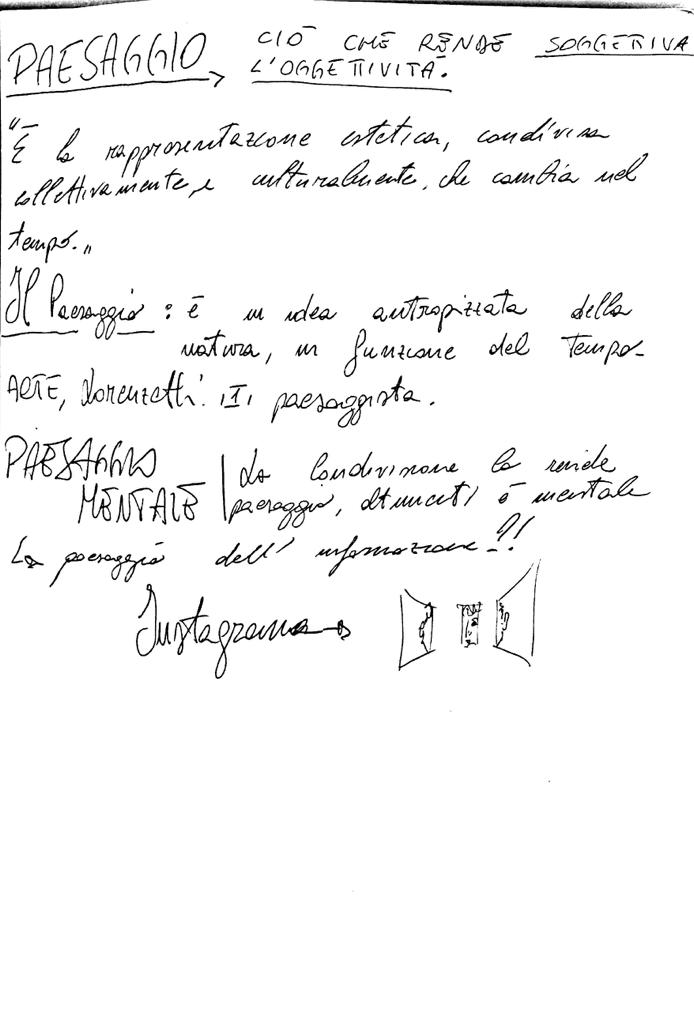 PAESAGGIO → CIÒ CHE RENDE SOGGETTIVA
L'OGGETTIVITÀ.
"È la rappresentazione estetica, condivisa
collettivamente e culturalmente, che cambia nel
tempo."
Il Paesaggio : è un idea antropizzata della
natura, in funzione del tempo.
ARTE, Lorenzetti: I paesaggista.
PAESAGGIO
MENTALE
La condivisione lo rende
paesaggio, altrimenti è mentale
Lo paesaggio dell' informazione?!
Instagram →